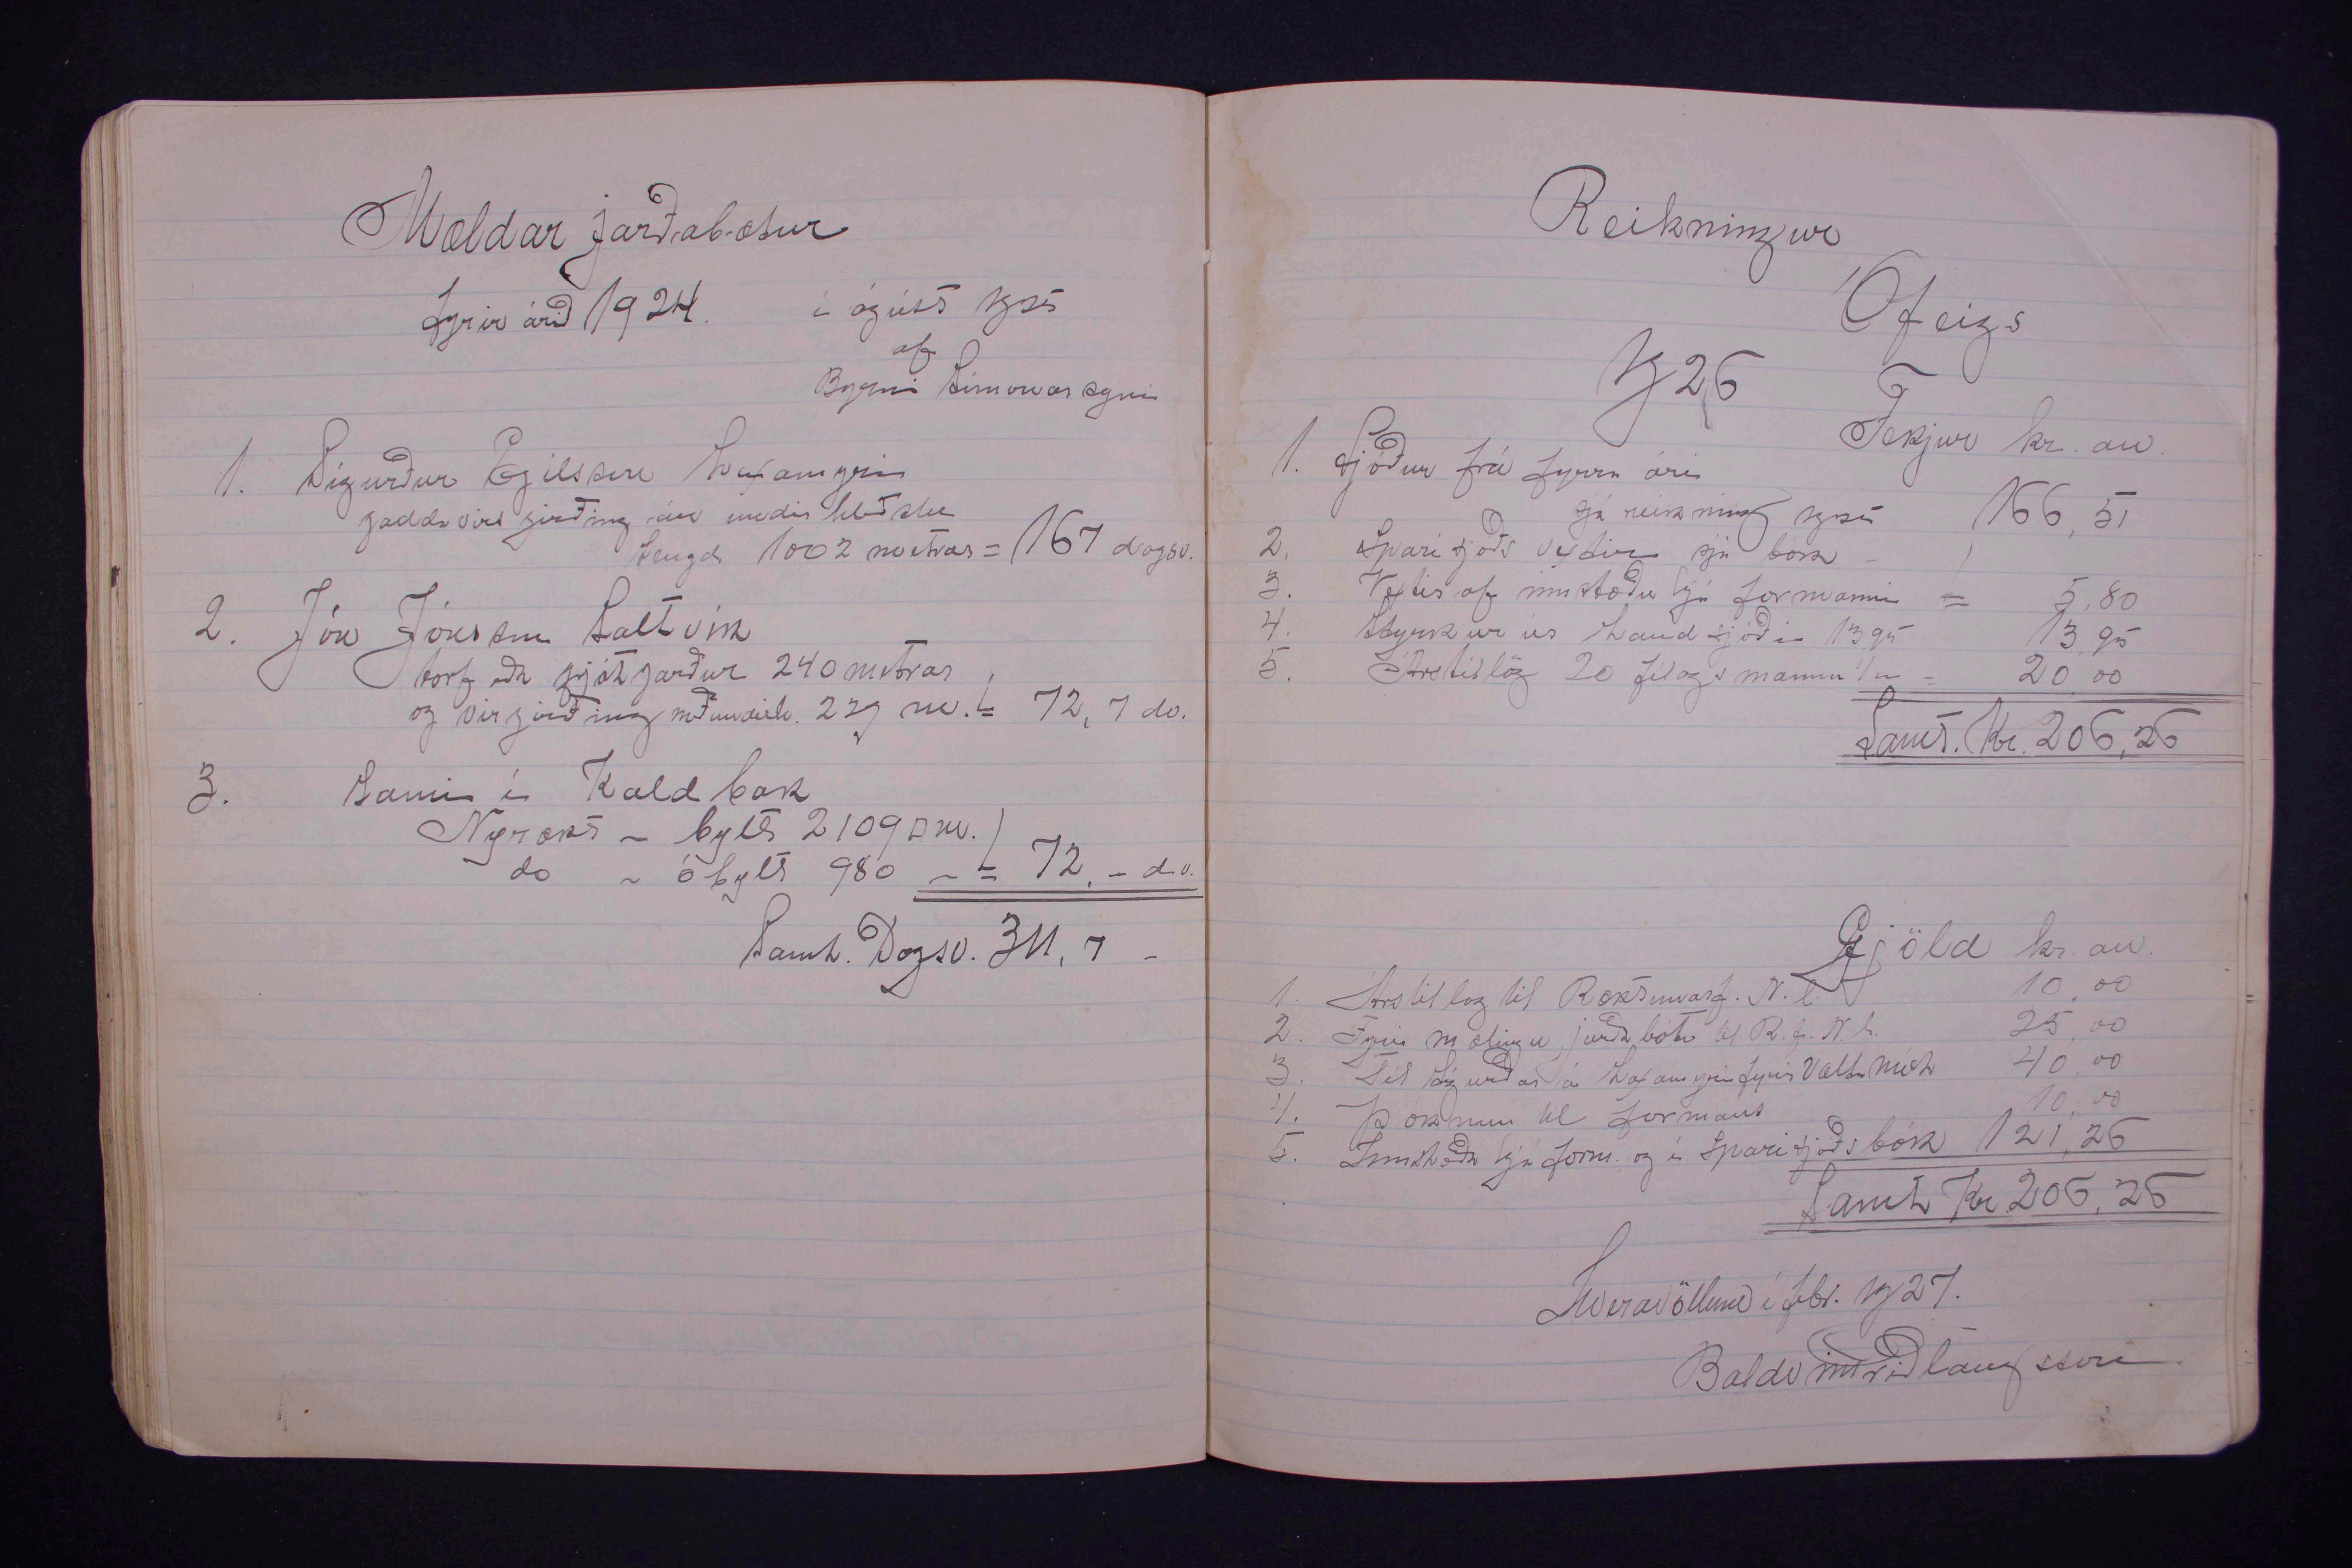 Mældar jarðabætur
fyrir árið 1924. í ágúst 1925
af
Byrni Símonarsyni
1. Sigurður Egilsson Laxamýri
gaddavírs girðing án undirhleðslu
Lengd 1002 metrar = 167 dagsv.
2. Jón Jónsson Saltvík
torf eða grjótgarður 240 metrar
og vírgirðing með undirh. 229 m. = 72,7 do.
3. Sami í Kaldbak
Nýrækt - bylt 2109 □m.
do - óbylt 980 - = 72,- d.v.
Samt. Dagsv. 311,7 -
Reikningur
Ófeigs
1926
Tekjur kr. au.
1. Sjóður frá fyrra ári
sjá reikning 1925 166,51
2. Sparisjóðs vextir sjá bók -
3. Vextir af innstæðu hjá formanni = 5,80
4. Styrkur úr Landsjóði 13 95 13,95
5. Árstillög 20 félagsmanna 1/- = 20,00
Samt. Kr. 206,26
Gjöld kr. au.
1. Árstillag til Ræktunarf. N.l. 10,00
2. Fyrir mælingu jarðabóta til R.f. N.l. 25,00
3. Til Sigurðar á Laxamýri fyrir 40,00
4. Þóknun til formans 10,00
5. Innstæða hjá form. og í Sparisjóðsbók 121,26
Samt Kr 206,26
Hveravöllum í febr. 1927.
Baldvin Friðlaugsson